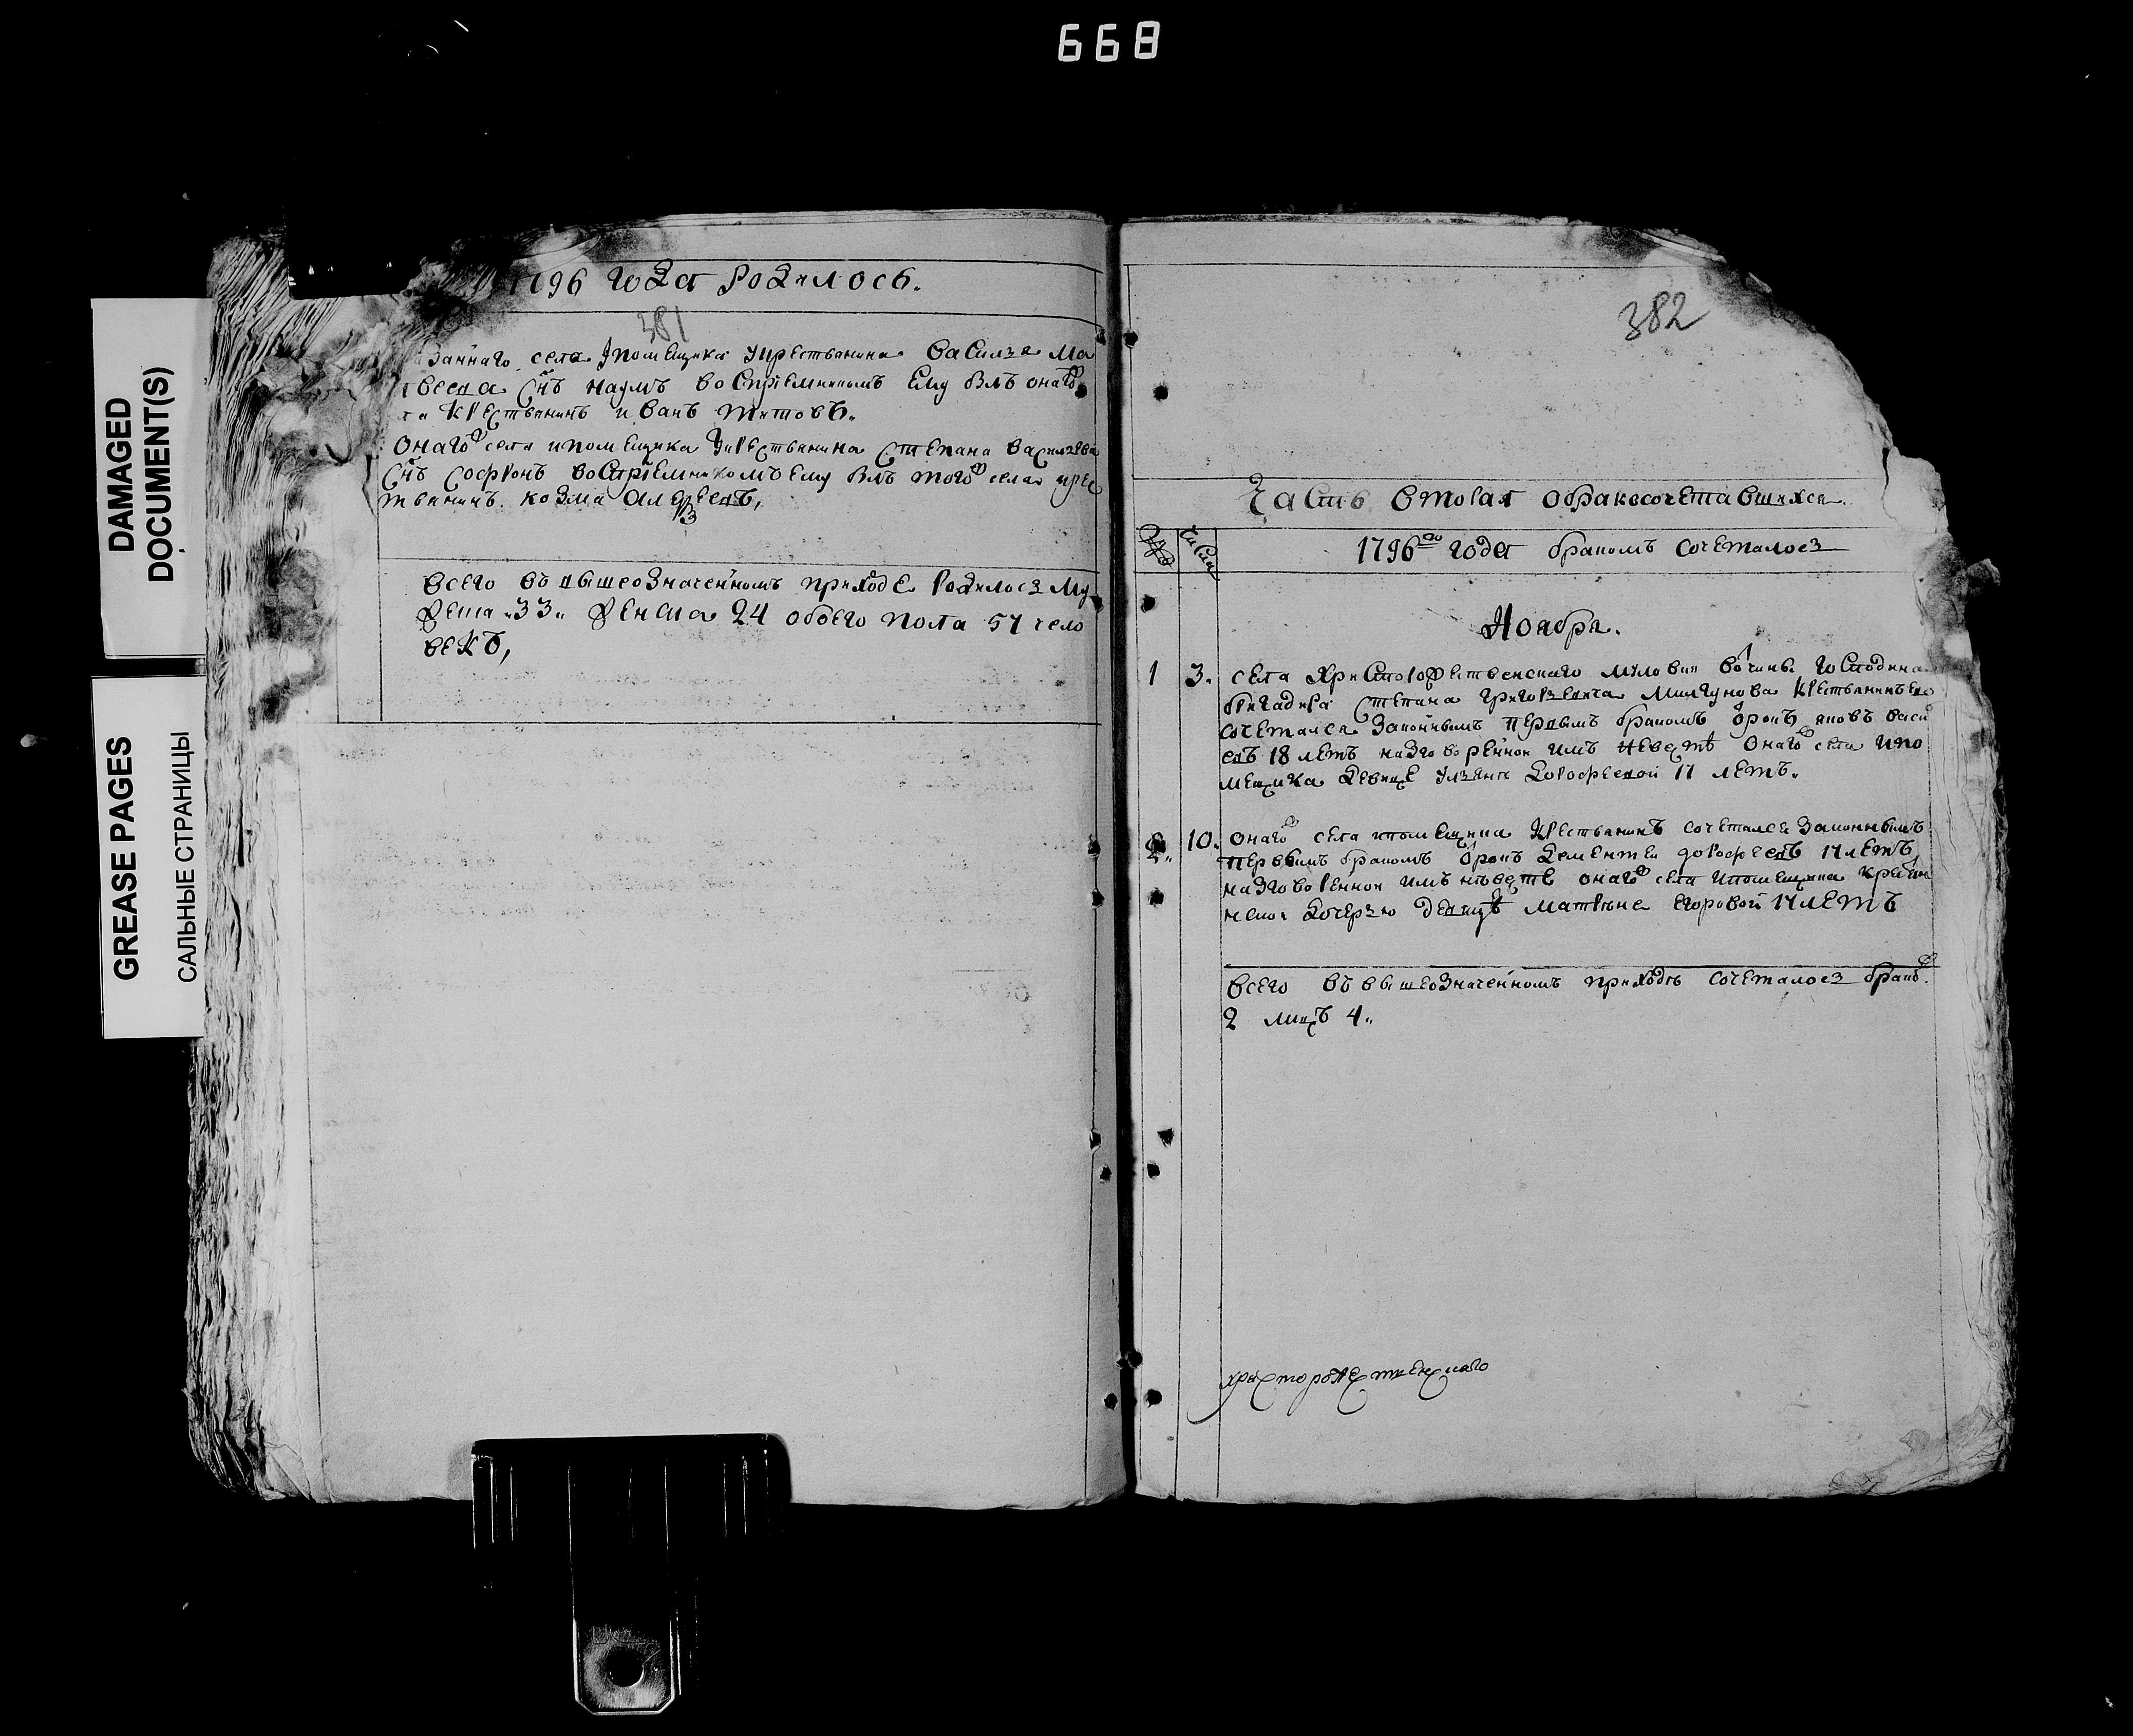 668
DAMAGED
DOCUMENT(S)
GREASE PAGES
САЛЬНЫЕ СТРАНИЦЫ
1796 года родилось.
381
села упомещика укрестьянина василья Ма
твеева снъ наумъ воспрiемникомъ ему былъ онаго
ла крестьянинъ иванъ титовъ.
Онаго села упомещика укрестьянина Степана васильева
снъ софронъ воспрiемникомъ ему былъ того села крес
тьянинъ козма алексеевъ,
всего въ вышеозначенномъ приходе родилось му
жеска 33 женска 24 обоего пола 57 чело
векъ,
382
Часть вторая о бракосочетавшихся
числа
1796го года бракомъ сочеталось
Ноября.
1 3. села Христорождественскаго вочины господина
бригадира Степана григорьевича Мингунова крестьянинъ ево
сочетался законнымъ первымъ бракомъ отрокъ васи
евъ 18 летъ на зговоренной имъ невестѣ онаго села упо
мещика девице ульяне дорофеевой 17 летъ.
2. 10. онаго села упомещика крестьянинъ сочетался законнымъ
первымъ бракомъ отрокъ дементей дорофеевъ 17 летъ
на зговоренной имъ невѣсте онаго села упомещика
дочерью девицѣ матрене егоровой 17 летъ
всего въ вышеозначенномъ приходѣ сочеталось браковъ
2 лицъ 4.
христорождественскаго